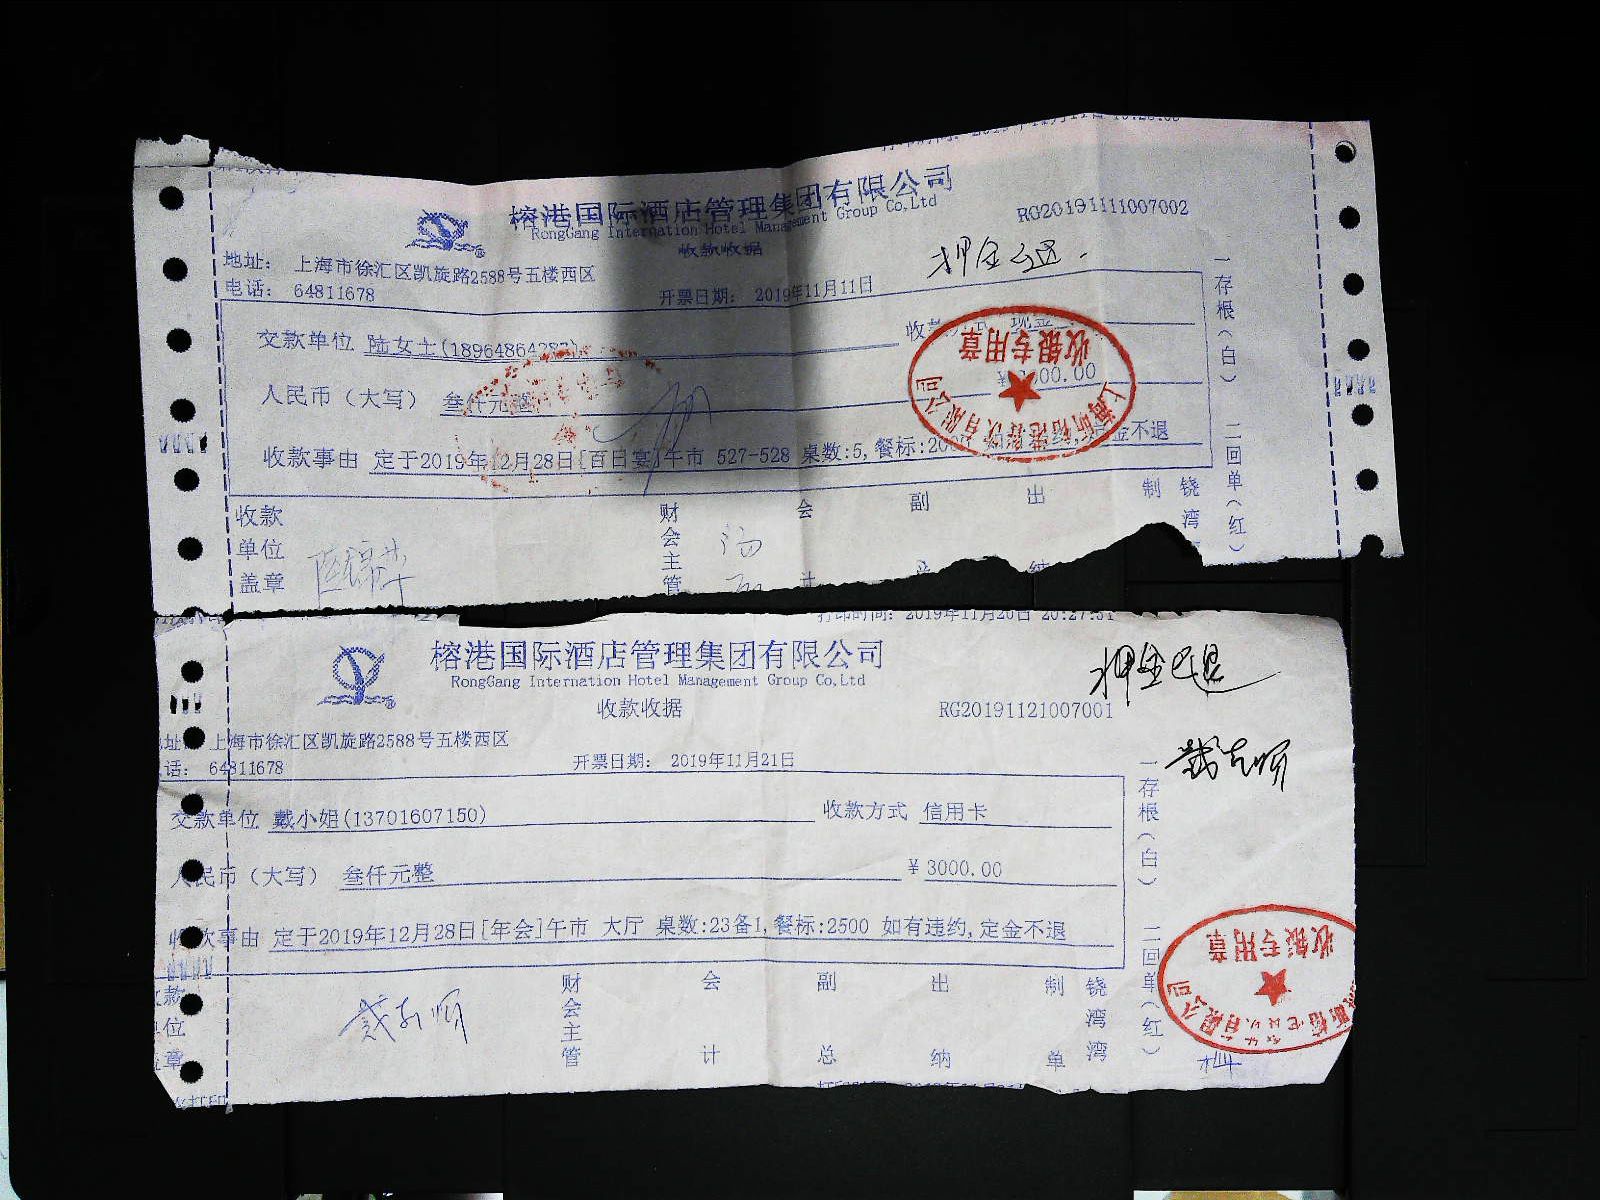 榕港国际酒店管理集团有限公司
RongGang Internation Hotel Management Group Co,Ltd
收款收据
RG20191111007002
押金已退.
地址： 上海市徐汇区凯旋路2588号五楼西区
电话： 64811678
开票日期： 2019年11月11日
交款单位 陆女士(18964864
收 现金
收银专用章
人民币（大写） 叁仟元整
¥ 000.00
收款事由 定于2019年12月28日[百日宴]午市 527-528 桌数:5,餐标:200 定金不退
一存根（白） 二回单（红）
收款单位盖章
财会主管
会计
副总
出纳
制
饶湾
打印时间: 2019年11月20日 20:27:51
榕港国际酒店管理集团有限公司
RongGang Internation Hotel Management Group Co,Ltd
收款收据
押金已退
RG20191121007001
址： 上海市徐汇区凯旋路2588号五楼西区
话： 64811678
开票日期： 2019年11月21日
交款单位 戴小姐(13701607150)
收款方式 信用卡
人民币（大写） 叁仟元整
¥ 3000.00
收款事由 定于2019年12月28日[年会]午市 大厅 桌数:23备1,餐标:2500 如有违约,定金不退
一存根（白） 二回单（红）
收银专用章
款
单位
盖章
财会主管
会计
副总
出纳
制单
饶湾湾